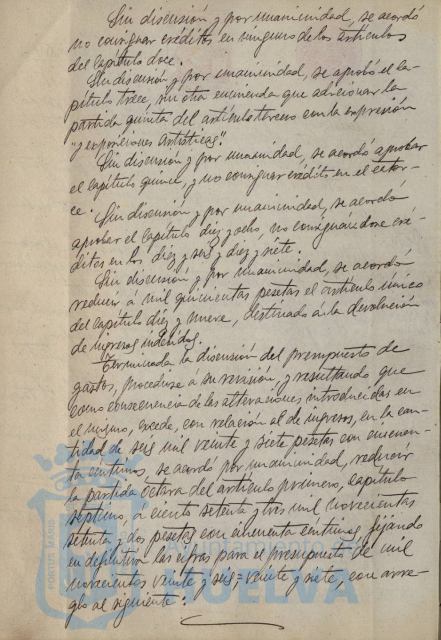 Sin discusión y por unanimidad, se acordó
no consignar créditos en ninguno de los artículos
del capítulo doce.
Sin discusión y por unanimidad, se aprobó el ca-
pítulo trece, sin otra enmienda que adicionar la
partida quinta del artículo tercero con la expresión
"y exposiciones artísticas".
Sin discusión y por unanimidad, se acordó aprobar
el capítulo quince, y no consignar crédito en el cator-
ce.
Sin discusión y por unanimidad, se acordó
aprobar el capítulo diez y ocho, no consignándose cré-
ditos en los diez y seis y diez y siete.
Sin discusión y por unanimidad, se acordó
reducir á mil quinientas pesetas el artículo único
del capítulo diez y nueve, destinado á la devolución
de ingresos indebidos.
Terminada la discusión del presupuesto de
gastos, procedióse á su revisión, y resultando que
como consecuencia de las alteraciones introducidas en
el mismo, excede, con relación al de ingresos, en la can-
tidad de seis mil veinte y siete pesetas con cincuen-
ta céntimos, se acordó por unanimidad, reducir
la partida octava del artículo primero, capítulo
séptimo, á ciento setenta y tres mil novecientas
setenta y dos pesetas con cincuenta céntimos, fijando
en definitiva las cifras para el presupuesto de mil
novecientos veinte y seis = veinte y siete, con arre-
glo al siguiente:
PORTUS MARIS
HUELVA